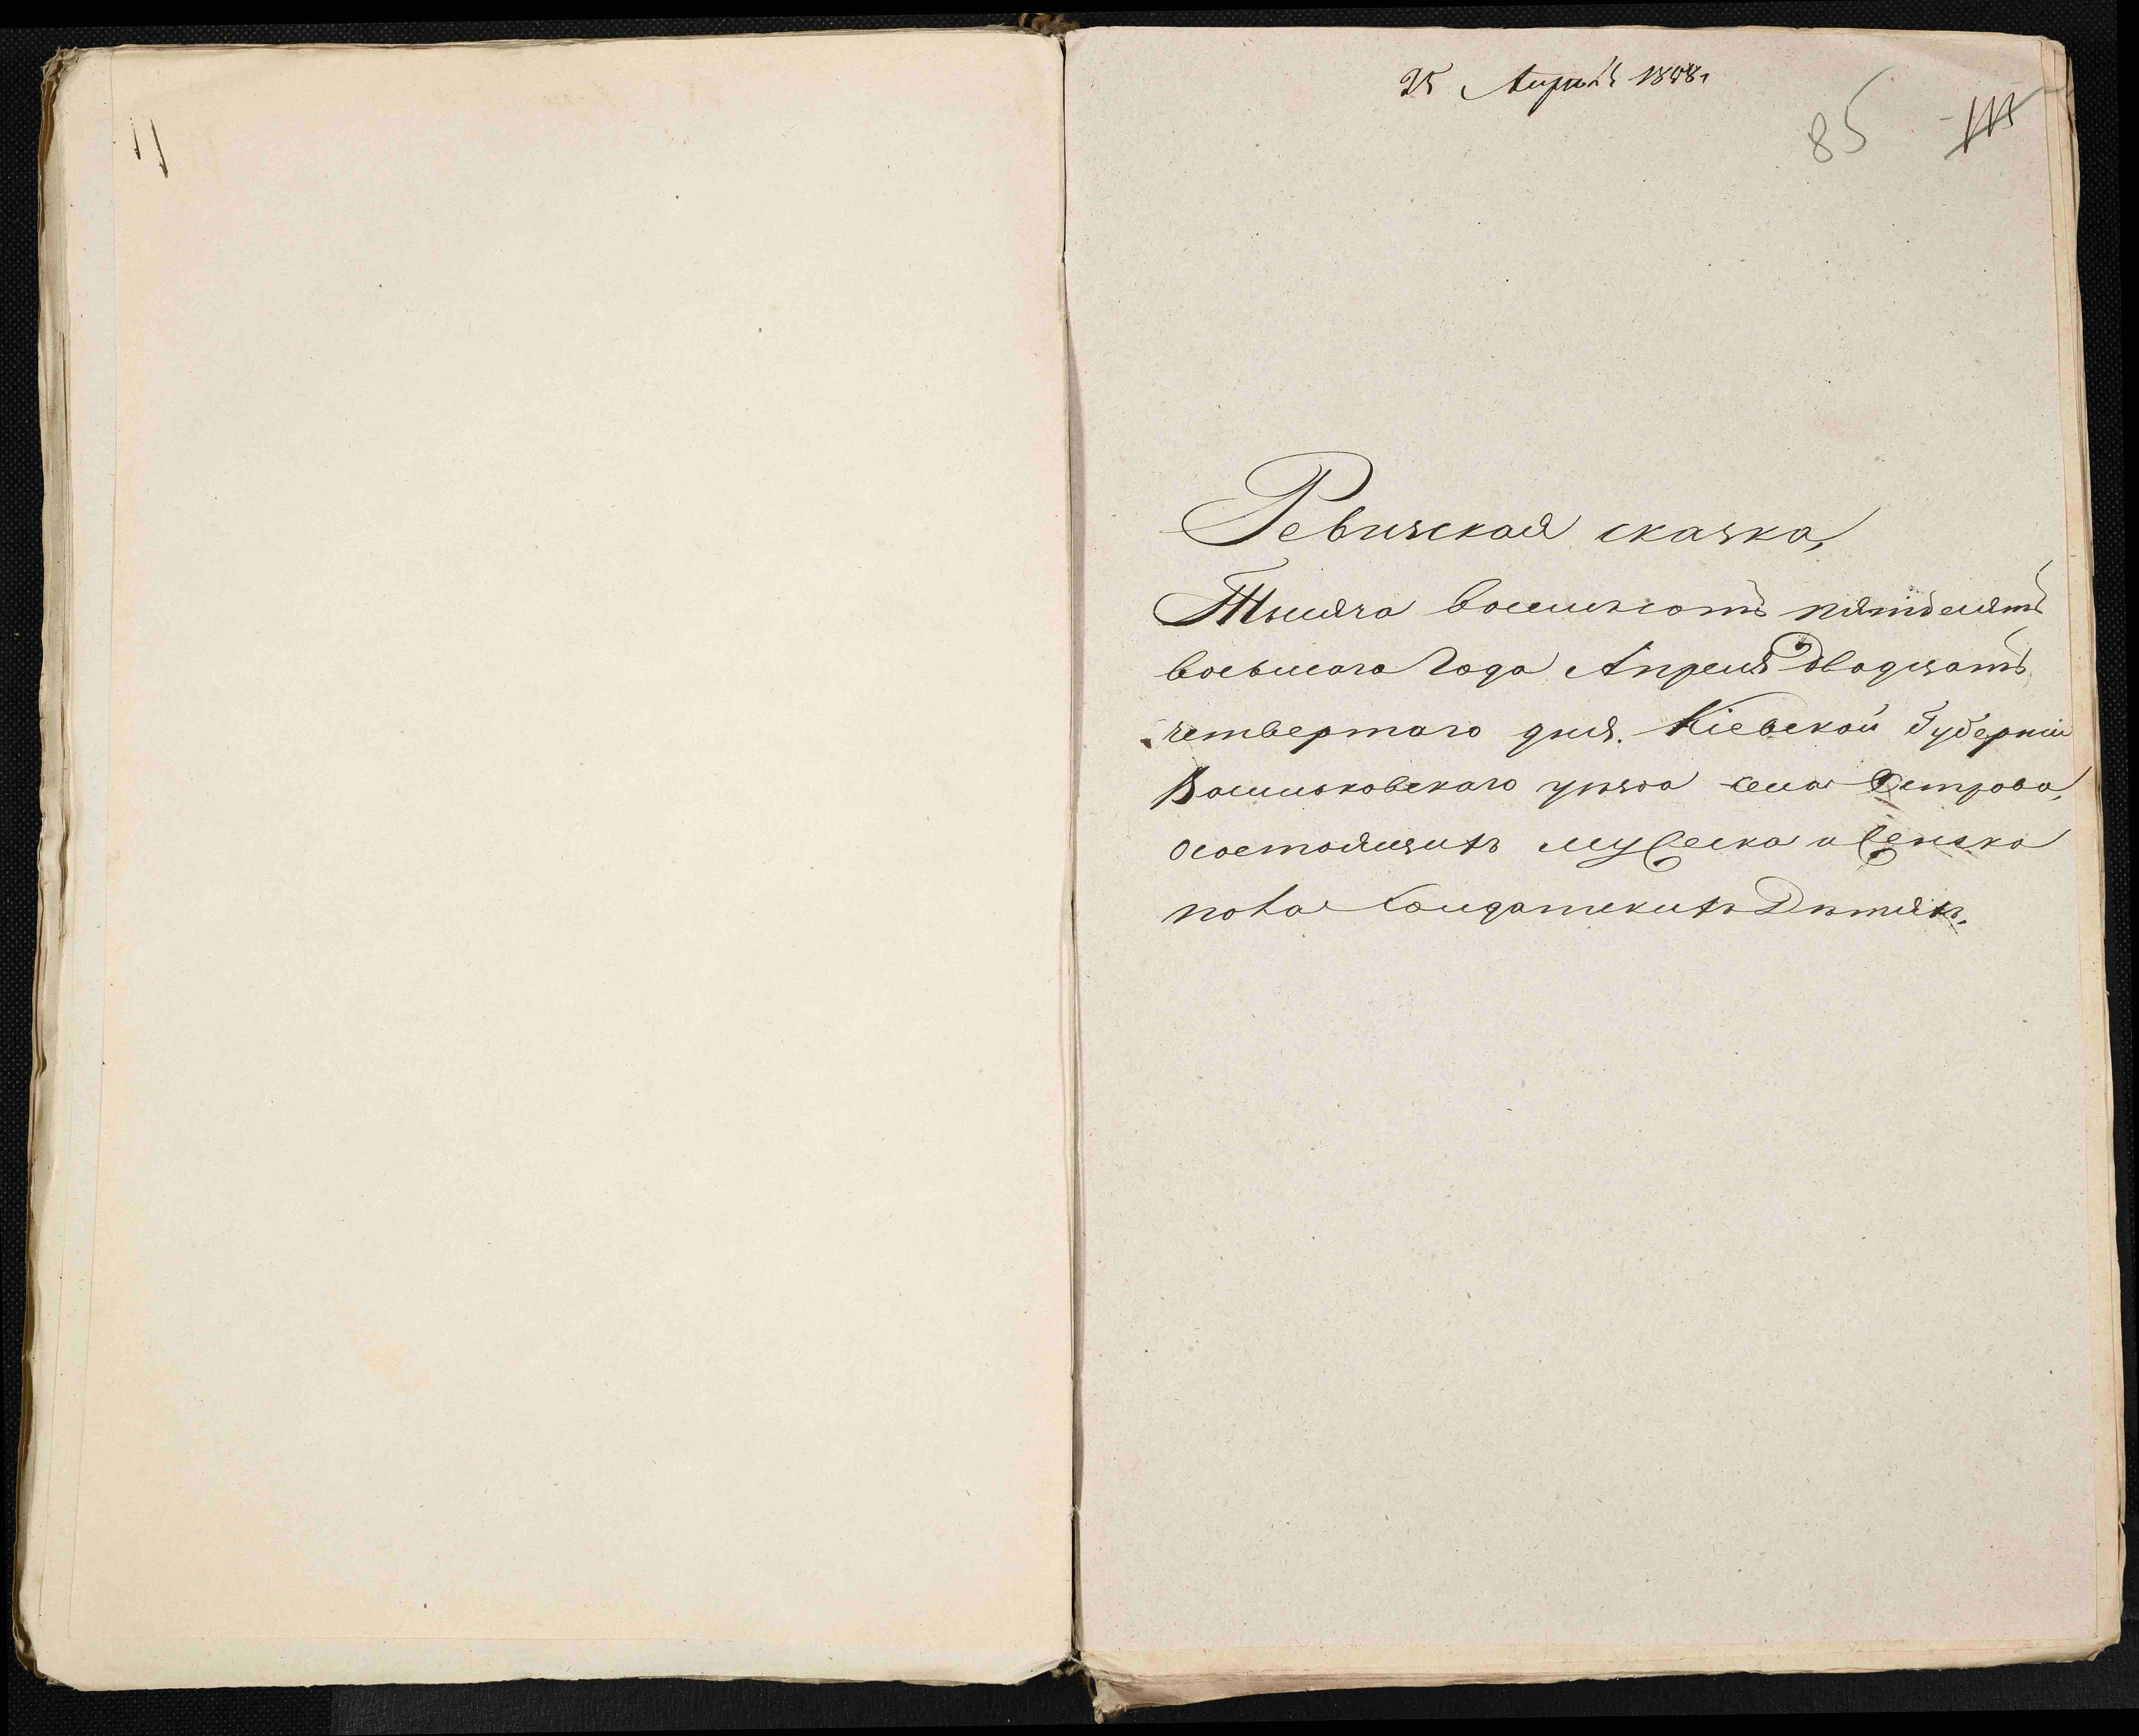 25 Апрѣля 1858 г
85
Ревизская сказка,
Тысяча восемьсотъ пятдесятъ
восьмаго года Апреля двадцать
четвертаго дня. Кіевской Губерніи
Васильковскаго уѣзда села Острова,
осостоящихъ мужеска и женска
пола Солдатскихъ Дѣтяхъ.